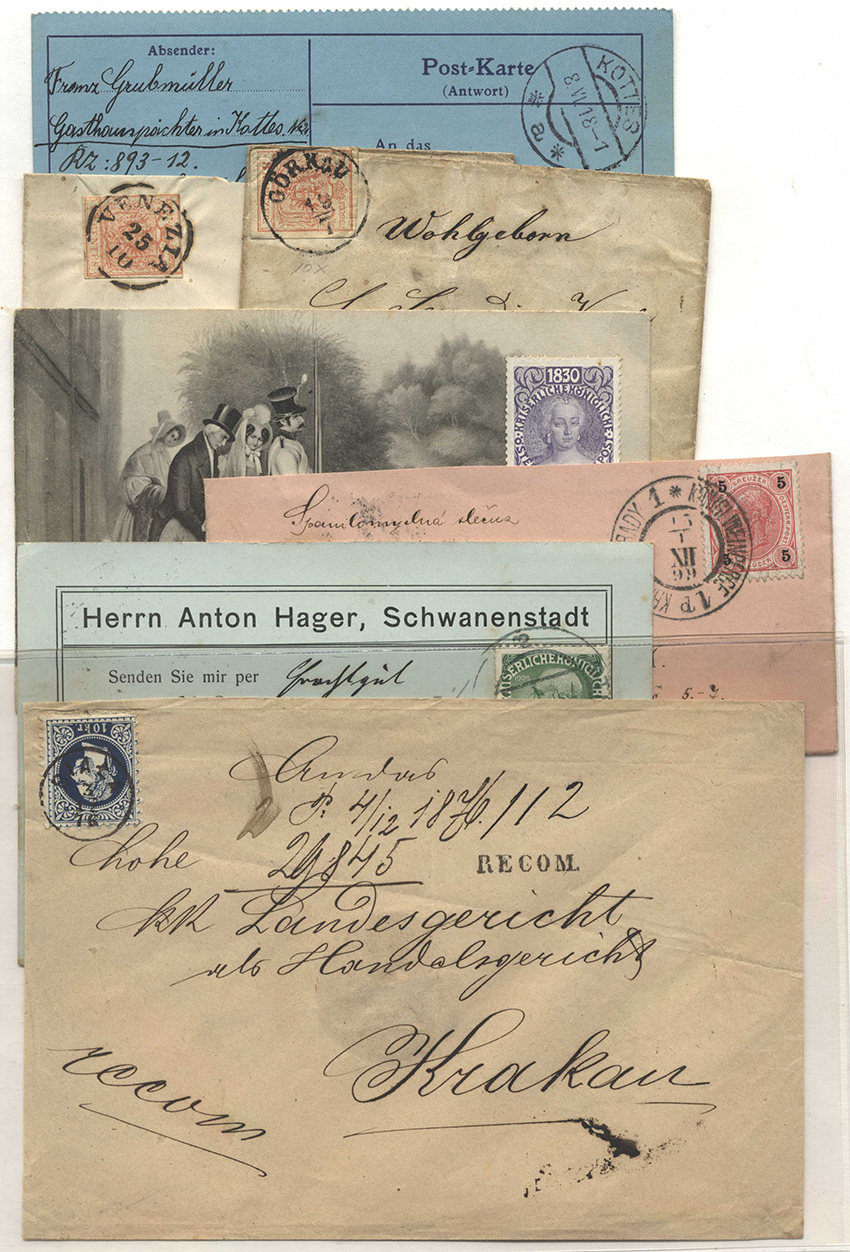 Absender:
Franz Grubmüller
Gasthauspächter in Kottes
RZ: 893-12.
Post-Karte
(Antwort)
An das
KOTTES
8 VI 18-1
* a *
VENEZIA
25
10
GÖRKAU
10x
Wohlgeborn
1830
KAISERLICHE KÖNIGLICHE
POST
slečna
5 5
KREUZER
5
1 * KÖNIGL. WEINBERGE 1
15
XII
99
5.-7.
Herrn Anton Hager, Schwanenstadt
Senden Sie mir per Frachtgut
KAISERLICHE KÖNIGLICHE
10 kr
An das
4/12 1876/112
hohe 29845
RECOM.
kk Landesgericht
als Handelsgericht
Krakau
recom